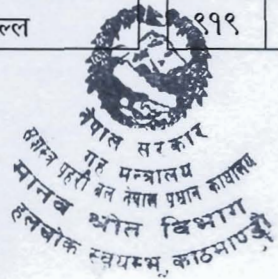 ल्ल ९१९
नेपाल सरकार
गृह मन्त्रालय
सशस्त्र प्रहरी बल नेपाल प्रधान कार्यालय
मानव श्रोत विभाग
हलचोक स्वयम्भू, काठमाण्डौ